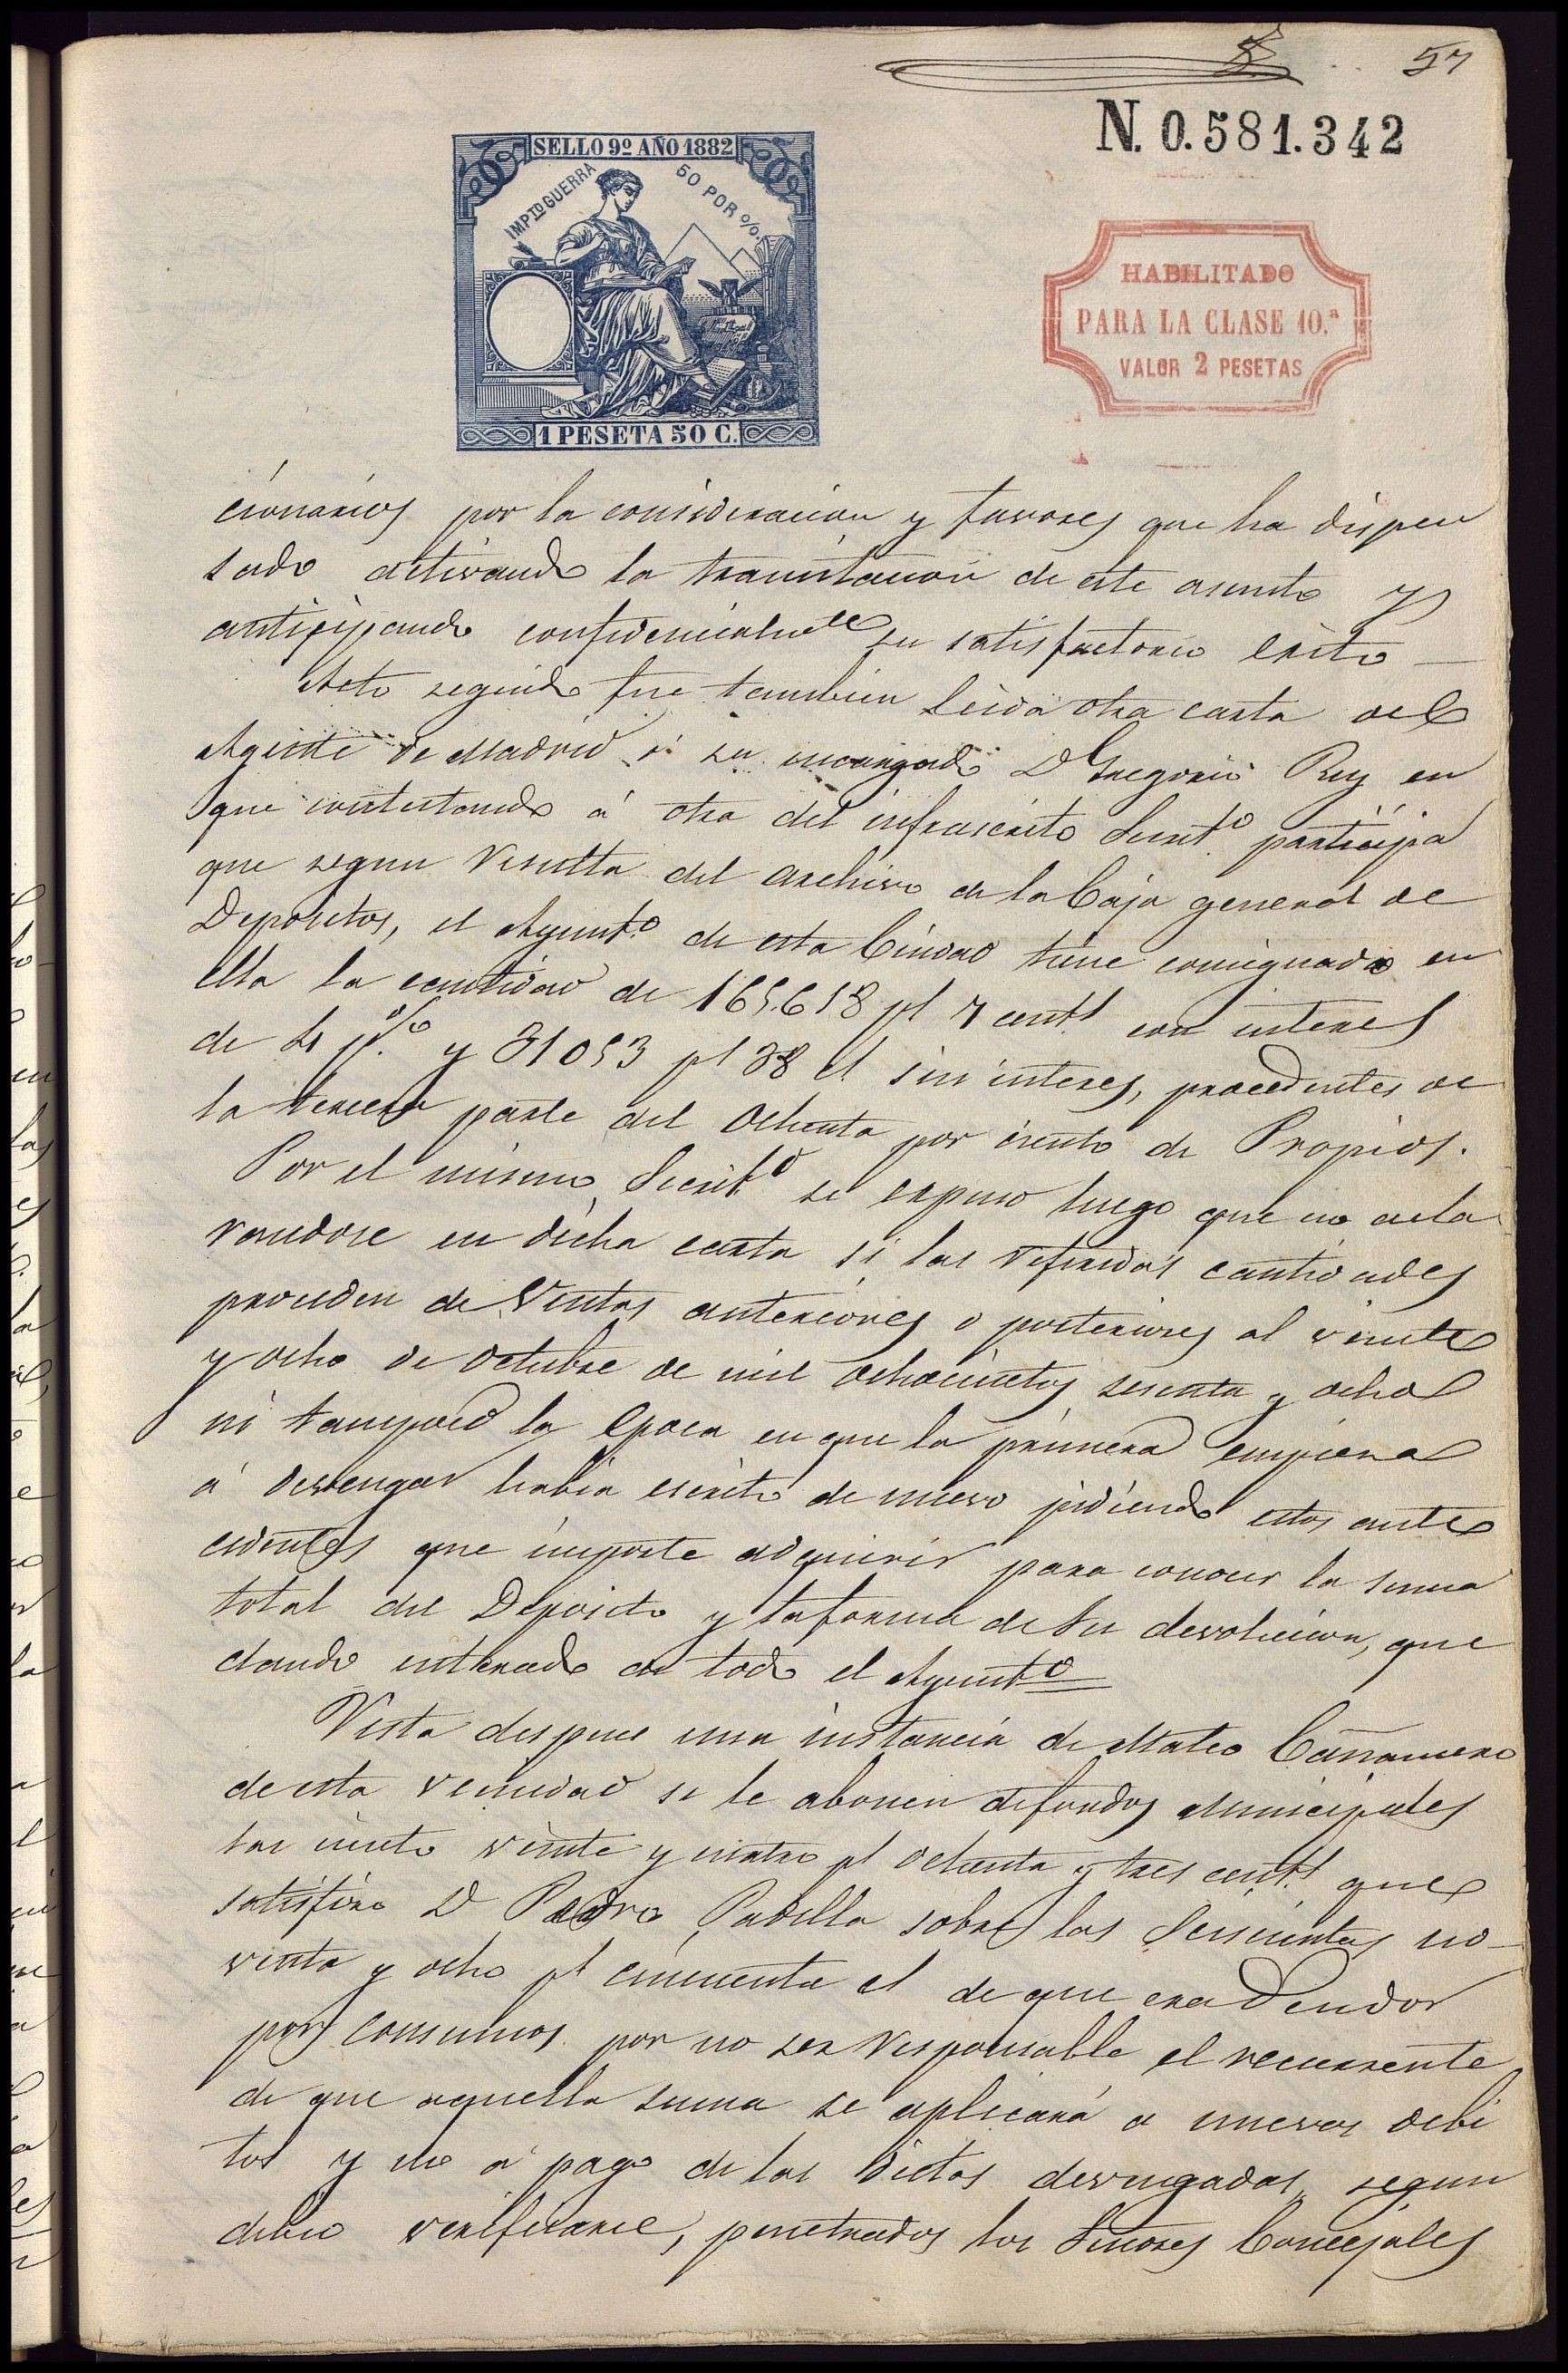 57
N. 0.581.342
SELLO 9º AÑO 1882
IMPTO GUERRA 50 POR %.
1 PESETA 50 C.
HABILITADO
PARA LA CLASE 10.ª
VALOR 2 PESETAS
cionarios por la consideracion y favores que ha dispen
sado activando la tramitacion de este asunto y
anticipando confidencialmte su satisfactorio exito
Acto seguido fue tambien leida otra carta del
Agente de Madrid á su encargado D Gregorio Rey en
que contestando á otra del infrascrito Secretº participa
que segun resulta del archivo de la Caja general de
Depositos, el Ayuntº de esta Ciudad tiene consignada en
ella la cantidad de 165.618 pt 7 cents con interes
de 4 p.% y 31053 pt 38 ct sin interes, procedentes de
la tercera parte del Ochenta por ciento de Propios.
Por el mismo Secretº se expuso luego que no acla
randose en dicha carta si las referidas cantidades
proceden de Ventas anteriores o posteriores al veinte
y ocho de Octubre de mil ochocientos sesenta y ocho
ni tampoco la epoca en que la primera empieza
á devengar habia escrito de nuevo pidiendo estos ante
cedentes que importe adquirir para conocer la suma
total del Deposito y la forma de su devolucion, que
dando enterado de todo el Ayuntº
Vista despues una instancia de Mateo Cañamero
de esta vecindad se le abonen de fondos Municipales
las ciento veinte y cuatro pt ochenta y tres cents que
satisfizo D Pedro Padilla sobre las Seiscientas no-
venta y ocho pt cincuenta ct de que era Deudor
por consumos por no ser responsable el recurrente
de que aquella suma se aplicará a nuevos debi
tos y no á pago de las Dietas devengadas segun
debio verificarse, penetrados los Señores Concejales